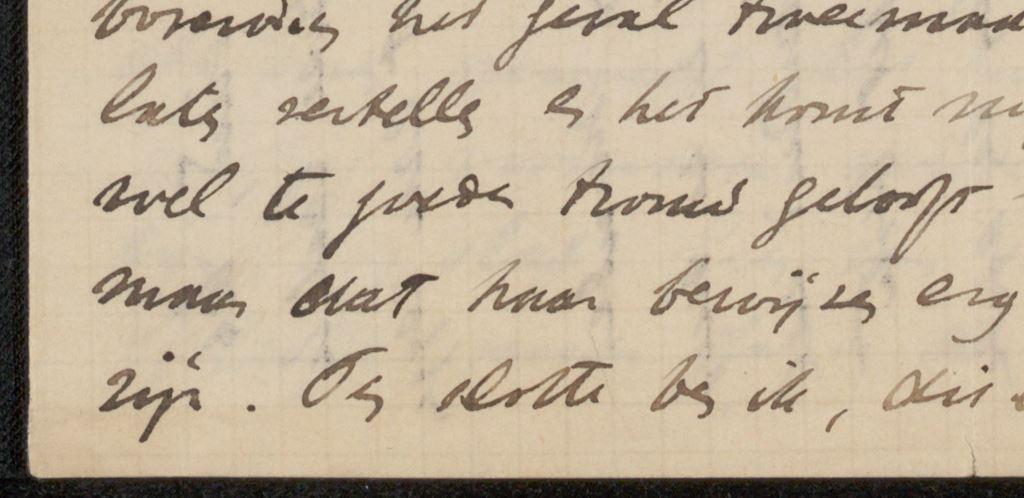 bovendien het geval tweemaal
laten vertellen en het komt mij
wel te goeder trouw geloof
maar dat haar bewijzen erg
zijn. Ten slotte ben ik, die